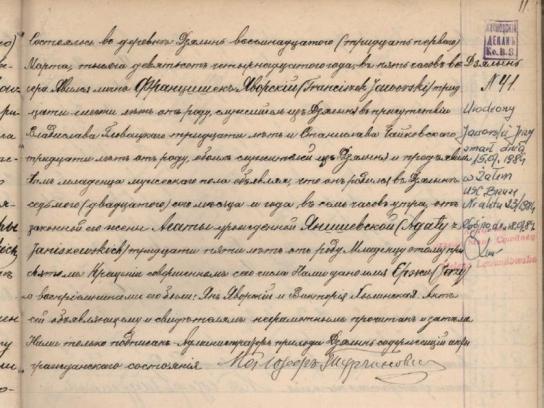 11.
Состоялось въ деревнѣ Дзялынь восемнадцатого (тридцать перваго)
Марта, тысяча девятьсотъ четырнадцатого года, въ пять часовъ ве-
чера. Явился лично Францишекъ Яворскій (Franciszek Jaworski) трид
цати лѣтъ отъ роду, служащій изъ Дзялыня въ присутствіи
Владислава тридцати лѣтъ и Станислава Чайковского
тридцати лѣтъ отъ роду, обоихъ служителей изъ Дзялыня и предъявилъ
Намъ младенца мужескаго пола объявляя, что онъ родился въ Дзялынѣ
седьмого (двадцатого) сего мѣсяца и года въ часовъ утра, отъ
законной его жены Агаты урожденной Янишевской (Agaty z
Janiszewskich) тридцати пяти лѣтъ отъ роду. Младенцу этому при
Святомъ Крещеніи совершенномъ сего числа Нами дано имя Ержи (Jerzy)
а воспріемниками его были: Янъ Яворскій и Викторія Актъ
сей объявляющему и свидѣтелямъ неграмотнымъ прочитанъ и затемъ
Нами только подписанъ. Администраторъ прихода Дзялынь содержащій акты
гражданского состоянія
Дзялынь
№ 41.
Urodzony
Jaworski Jerzy
zmarł dnia
15.01.1984
w
USC
Nr aktu 23/1984